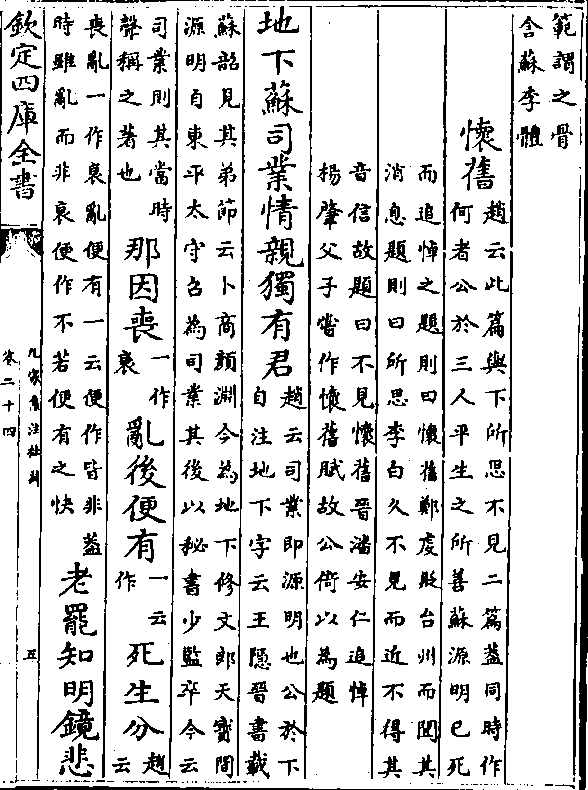 範謂之骨
含蘇李體
懷舊
趙云此篇與下所思不見二篇葢同時作
何者公於三人平生之所善蘇源明已死
而追悼之題則曰懷舊鄭虔貶台州而聞其
消息題則曰所思李白久不見而近不得其
音信故題曰不見懷舊晉潘安仁追悼
楊肇父子嘗作懷舊賦故公倚以為題
地下蘇司業情親獨有君
趙云司業即源明也公於下
自注地下字云王隱晉書載
蘇韶見其弟節云卜商顔淵今為地下修文郎天寳間
源明自東平太守召為司業其後以秘書少監卒今云
司業則其當時
聲稱之著也
那因喪
一作
衰
亂後便有
一云
作
死生分
趙
云
喪亂一作衰亂便有一云便作皆非葢
時雖亂而非衰便作不若便有之快
老罷知明鏡悲
欽定四庫全書
九家集注杜詩
卷二十四
五